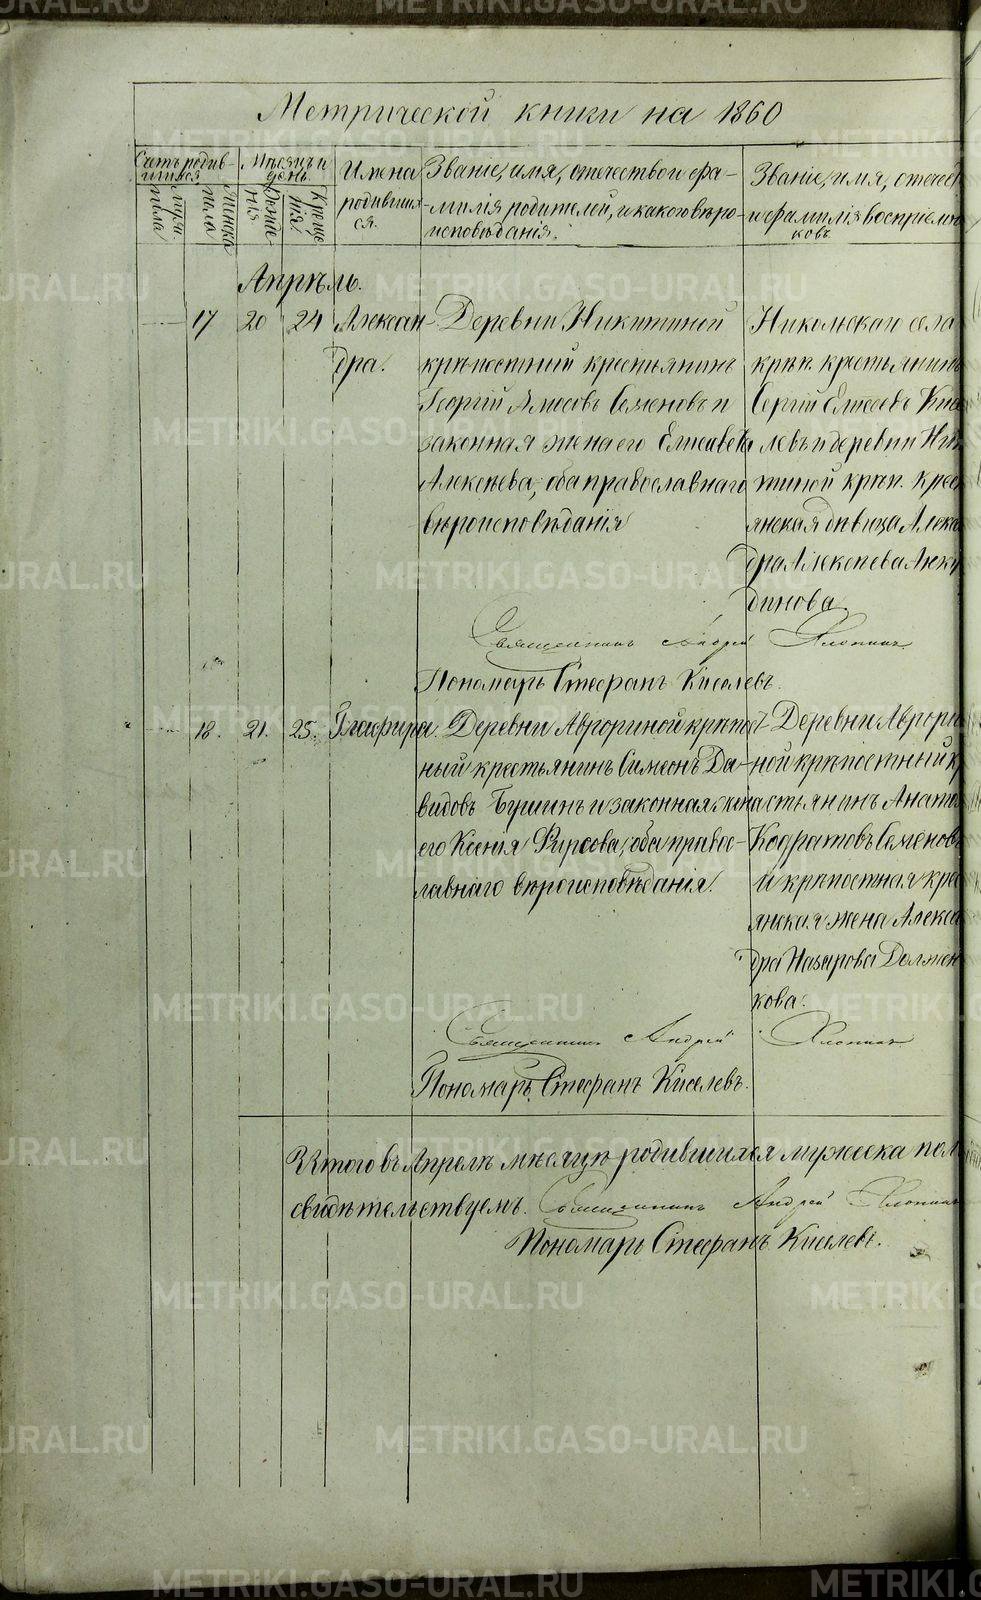 Метрической книги на 1860
Счетъ родив-
шихся
Мужеска
пола
Женска
пола
Мѣсяцъ и
день.
Рожде
нія
Креще
нія.
Имена
родивших
ся.
Званіе, имя, отечество и фа-
милія родителей, и какого вѣро-
исповѣданія.
Званіе, имя, отечест
и фамилія воспріемни
ковъ
Апрѣль.
17 20 24 Алексан-
дра.
Деревни Никитиной
крѣпостный крестьянинъ
Георгій Амосовъ Семеновъ и
законная жена его Елисавета
Алексѣева, оба православнаго
вѣроисповѣданія
Никольскаго села
крѣп. крестьянинъ
Сергій Елисеевъ Кисе
левъ и деревни Ники
тиной крѣп. крест
янская дѣвица Алекса
дра Алексѣева Анку
динова.
Священникъ Андрей Хлопинъ
Пономарь Стефанъ Киселевъ.
18. 21. 25. Глафира.
Деревни Аврориной крѣпост
ный крестьянинъ Симеонъ Да-
видовъ Бушинъ и законная жена
его Ксенія Фирсова, оба право-
лавнаго вѣроисповѣданія.
Деревни Аврори
ной крѣпостный кр
стьянинъ Анато
Кодратовъ Семеновъ
и крѣпостная крес
янская жена Алекса
дра Назарова Должен
кова.
Священникъ Андрей Хлопинъ
Пономарь Стефанъ Киселевъ.
Итого въ Апрелѣ мѣсяцѣ родившихся мужеска пол
свидѣтельствуемъ. Священникъ Андрей Хлопинъ
Пономарь Стефанъ Киселевъ.
METRIKI.GASO-URAL.RU